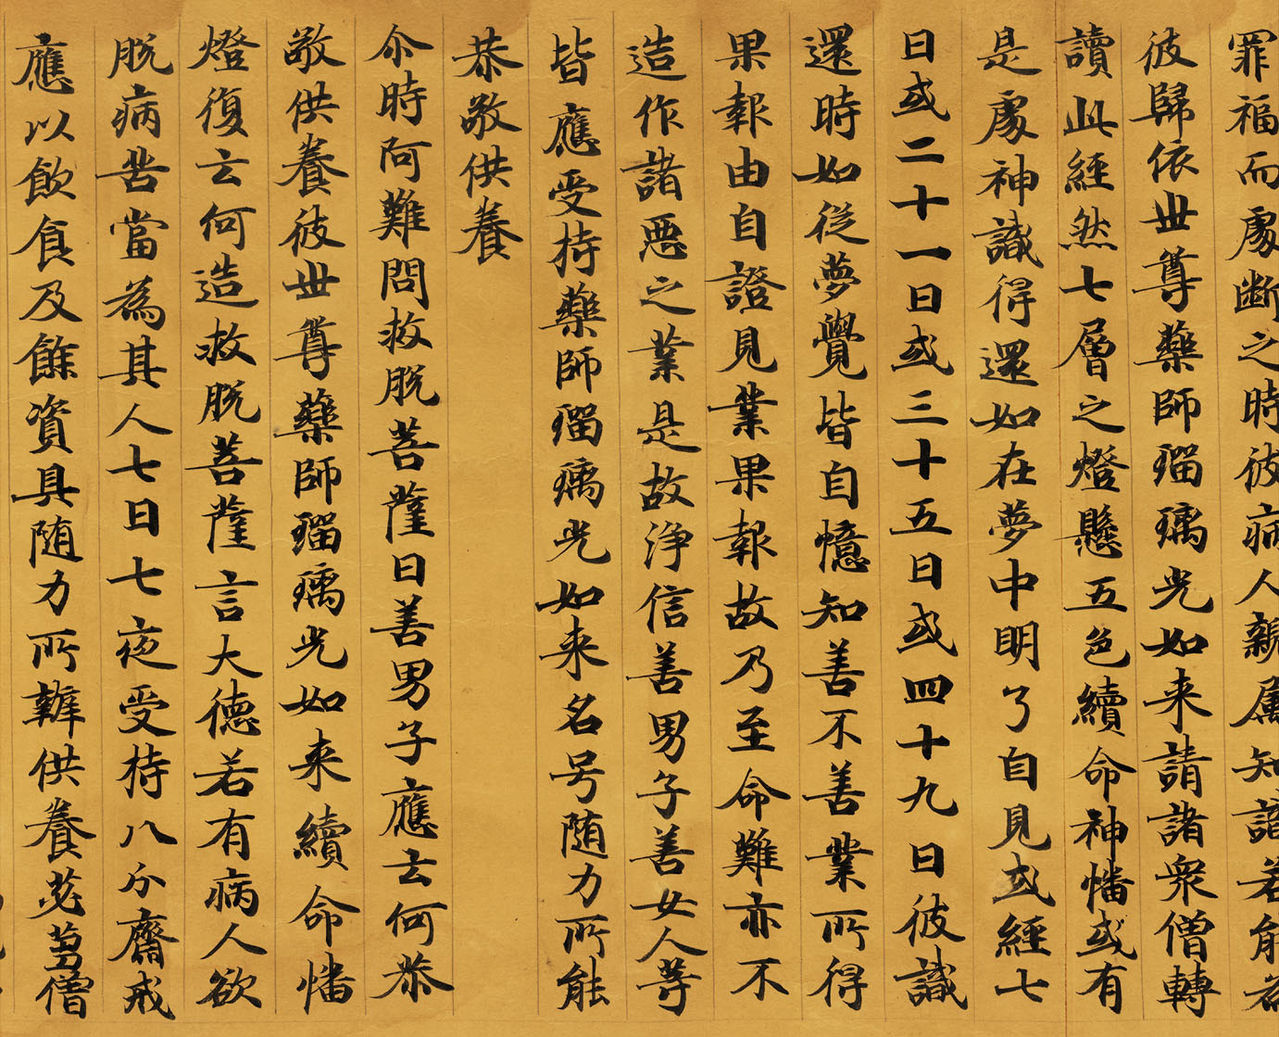 罪福而處斷之時彼病人親屬知識若能為
彼歸依世尊藥師瑠璃光如来請諸衆僧轉
讀此經然七層之燈懸五色續命神幡或有
是處神識得還如在夢中明了自見或經七
日或二十一日或三十五日或四十九日彼識
還時如從夢覺皆自憶知善不善業所得
果報由自證見業果報故乃至命難亦不
造作諸惡之業是故淨信善男子善女人等
皆應受持藥師瑠璃光如来名号随力所能
恭敬供養
尒時阿難問救脱菩薩曰善男子應云何恭
敬供養彼世尊藥師瑠璃光如来續命幡
燈復云何造救脱菩薩言大德若有病人欲
脱病苦當為其人七日七夜受持八分齋戒
應以飲食及餘資具随力所辦供養苾蒭僧